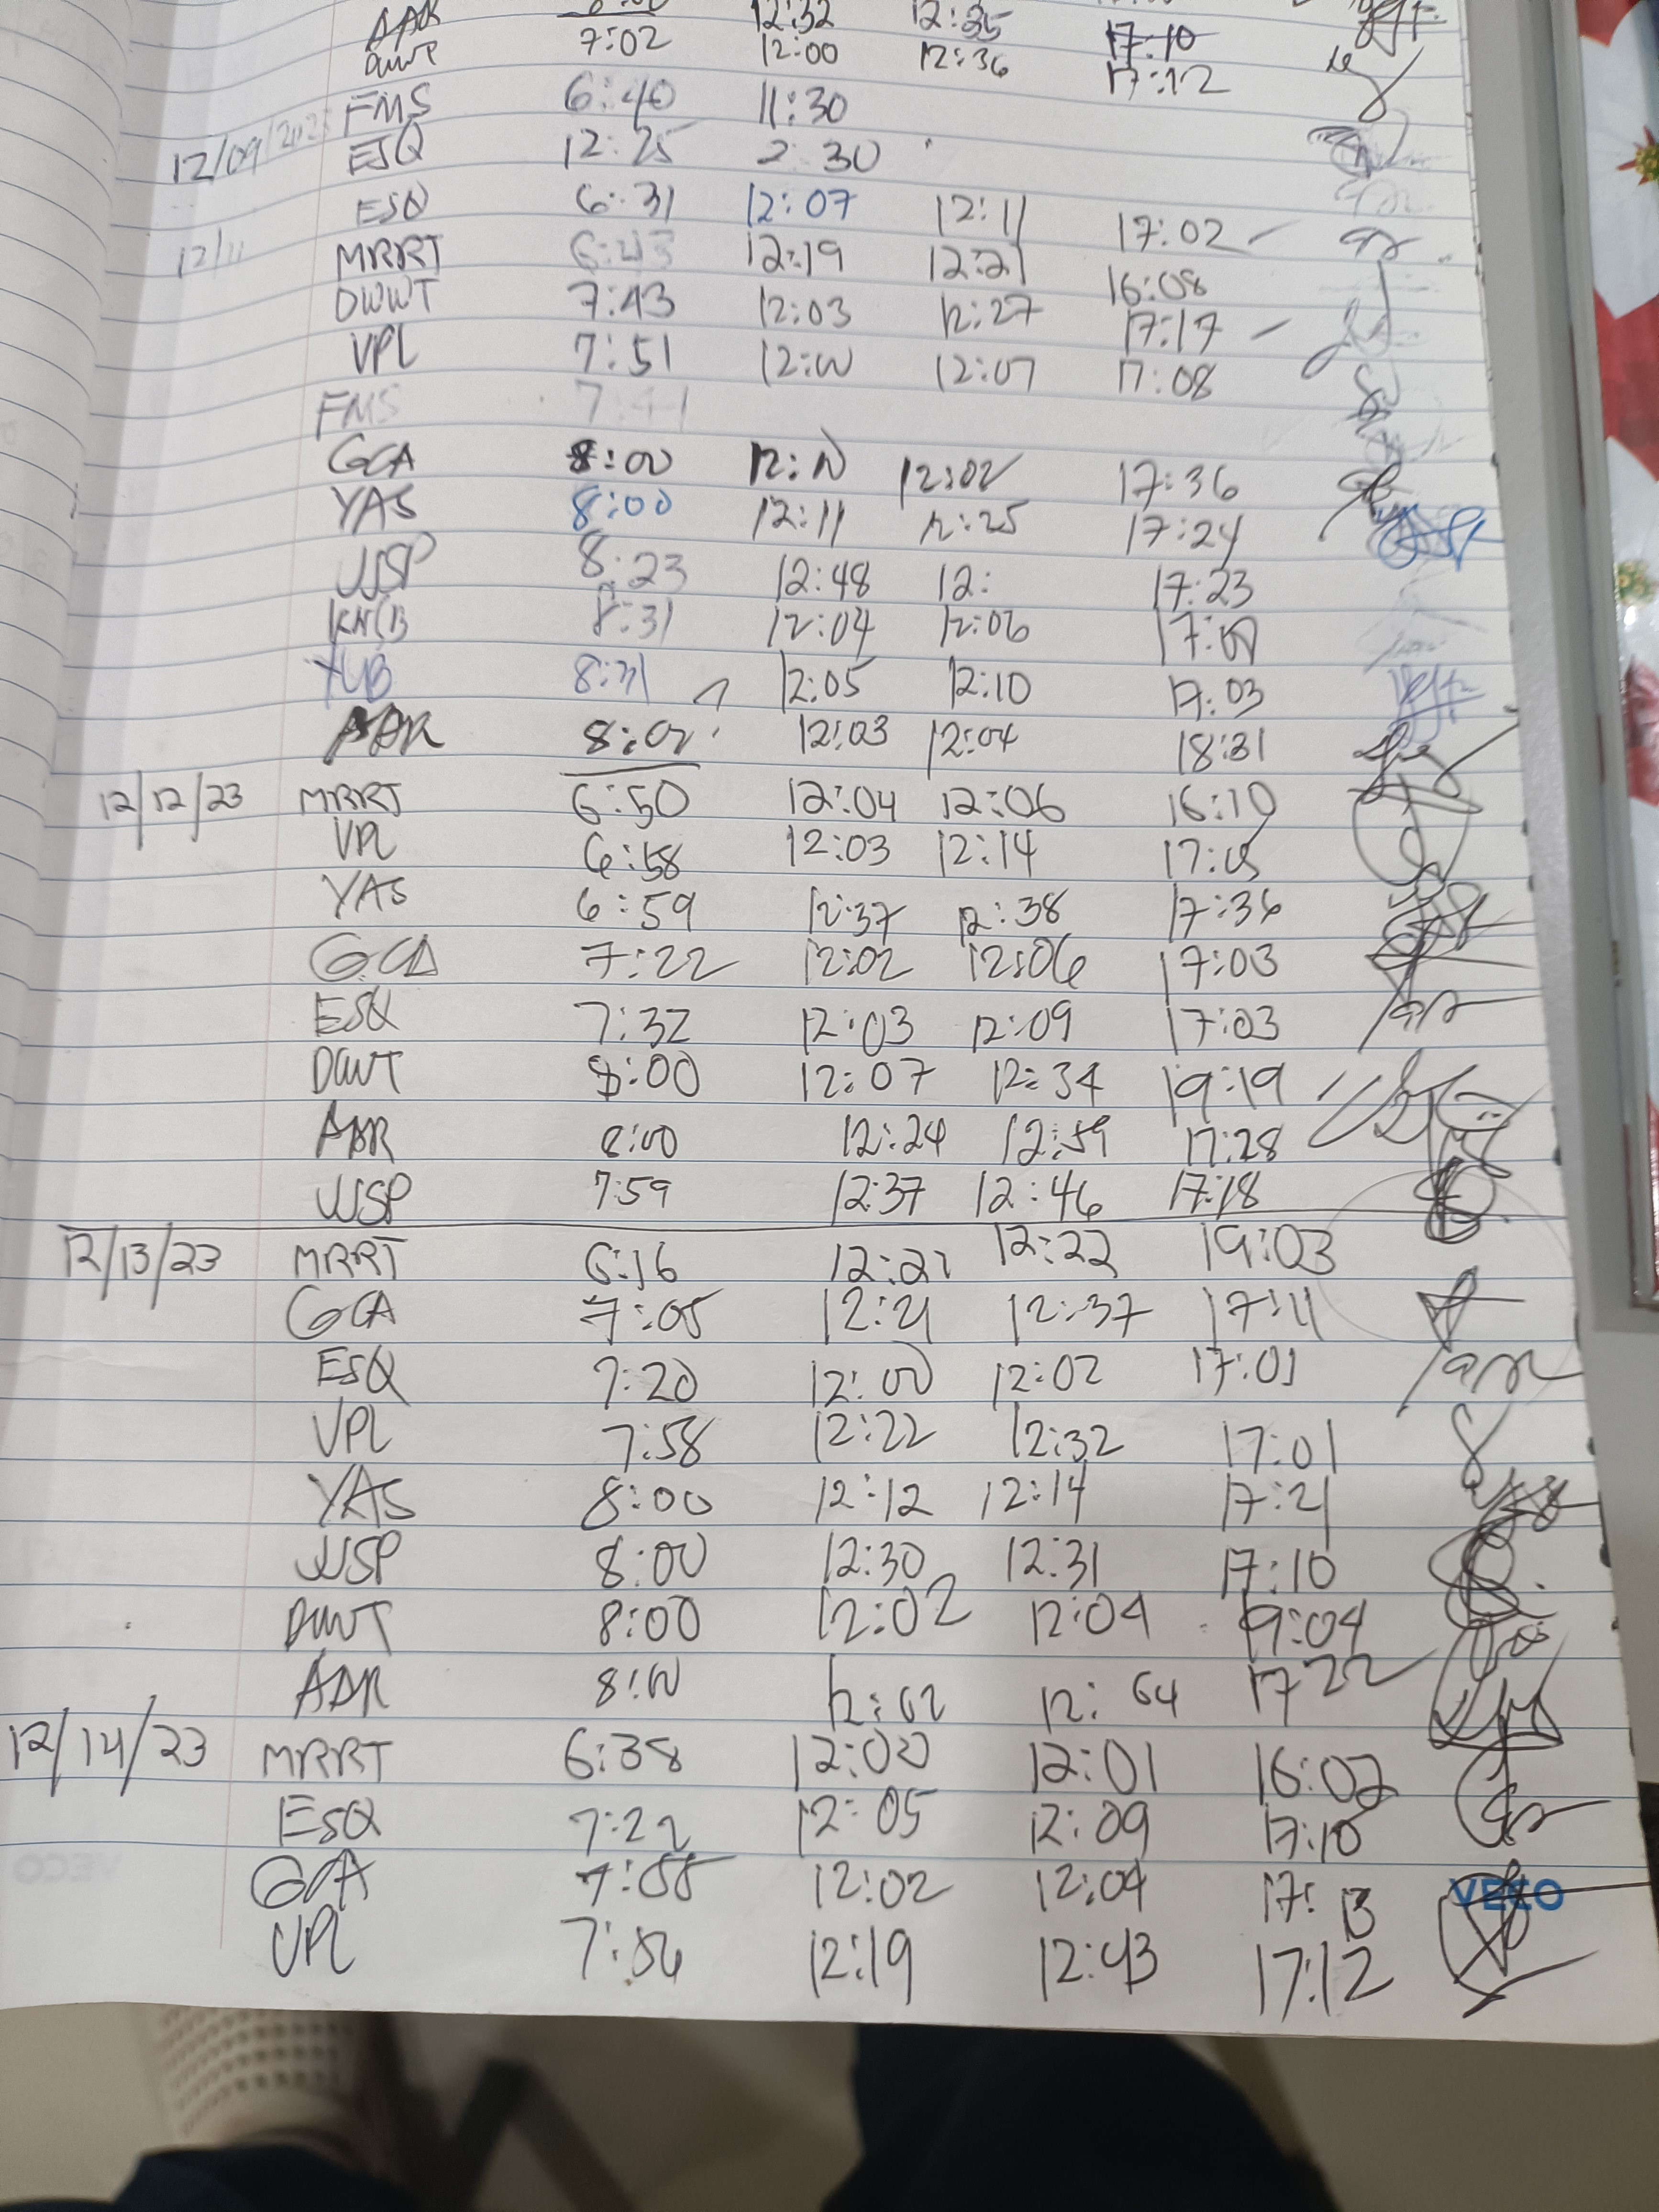 AAR 12:32 12:35 17:10
DWWT 7:02 12:00 12:36 17:12
FMS 6:40 11:30
12/09/2023 ESQ 12:25 2:30
ESQ 6:31 12:07 12:11 17:02
12/11 MRRT 6:43 12:19 12:21 16:08
DWWT 7:43 12:03 12:27 17:17
VPL 7:51 12:00 12:07 17:08
FMS 7:41
GCA 8:00 12:00 12:02 17:36
YAS 8:00 12:11 12:25 17:24
JJSP 8:23 12:48 12: 17:23
8:31 12:04 12:06
8:31 12:05 12:10 17:03
ADR 12:03 12:04 18:31
12/12/23 MRRT 6:50 12:04 12:06 16:10
VPL 6:58 12:03 12:14 17:05
YAS 6:59 12:37 12:38 17:36
GCA 7:22 12:02 12:06 17:03
ESQ 7:32 12:03 12:09 17:03
DWWT 8:00 12:07 12:34 19:19
ADR 8:00 12:24 12:59 17:28
JJSP 7:59 12:37 12:46 17:18
12/13/23 MRRT 6:16 12:21 12:22 19:03
GCA 7:05 12:21 12:37 17:11
ESQ 7:20 12:00 12:02 17:01
VPL 7:58 12:22 12:32 17:01
YAS 8:00 12:12 12:14 17:21
JJSP 8:00 12:30 12:31 17:10
DWWT 8:00 12:02 12:04 19:04
ADR 8:00 12:02 12:04 17 22
12/14/23 MRRT 6:38 12:00 12:01 16:02
ESQ 7:22 12:05 12:09 17:10
GCA 7:55 12:02 12:04 17:13
VECO
VPL 7:56 12:19 12:43 17:12